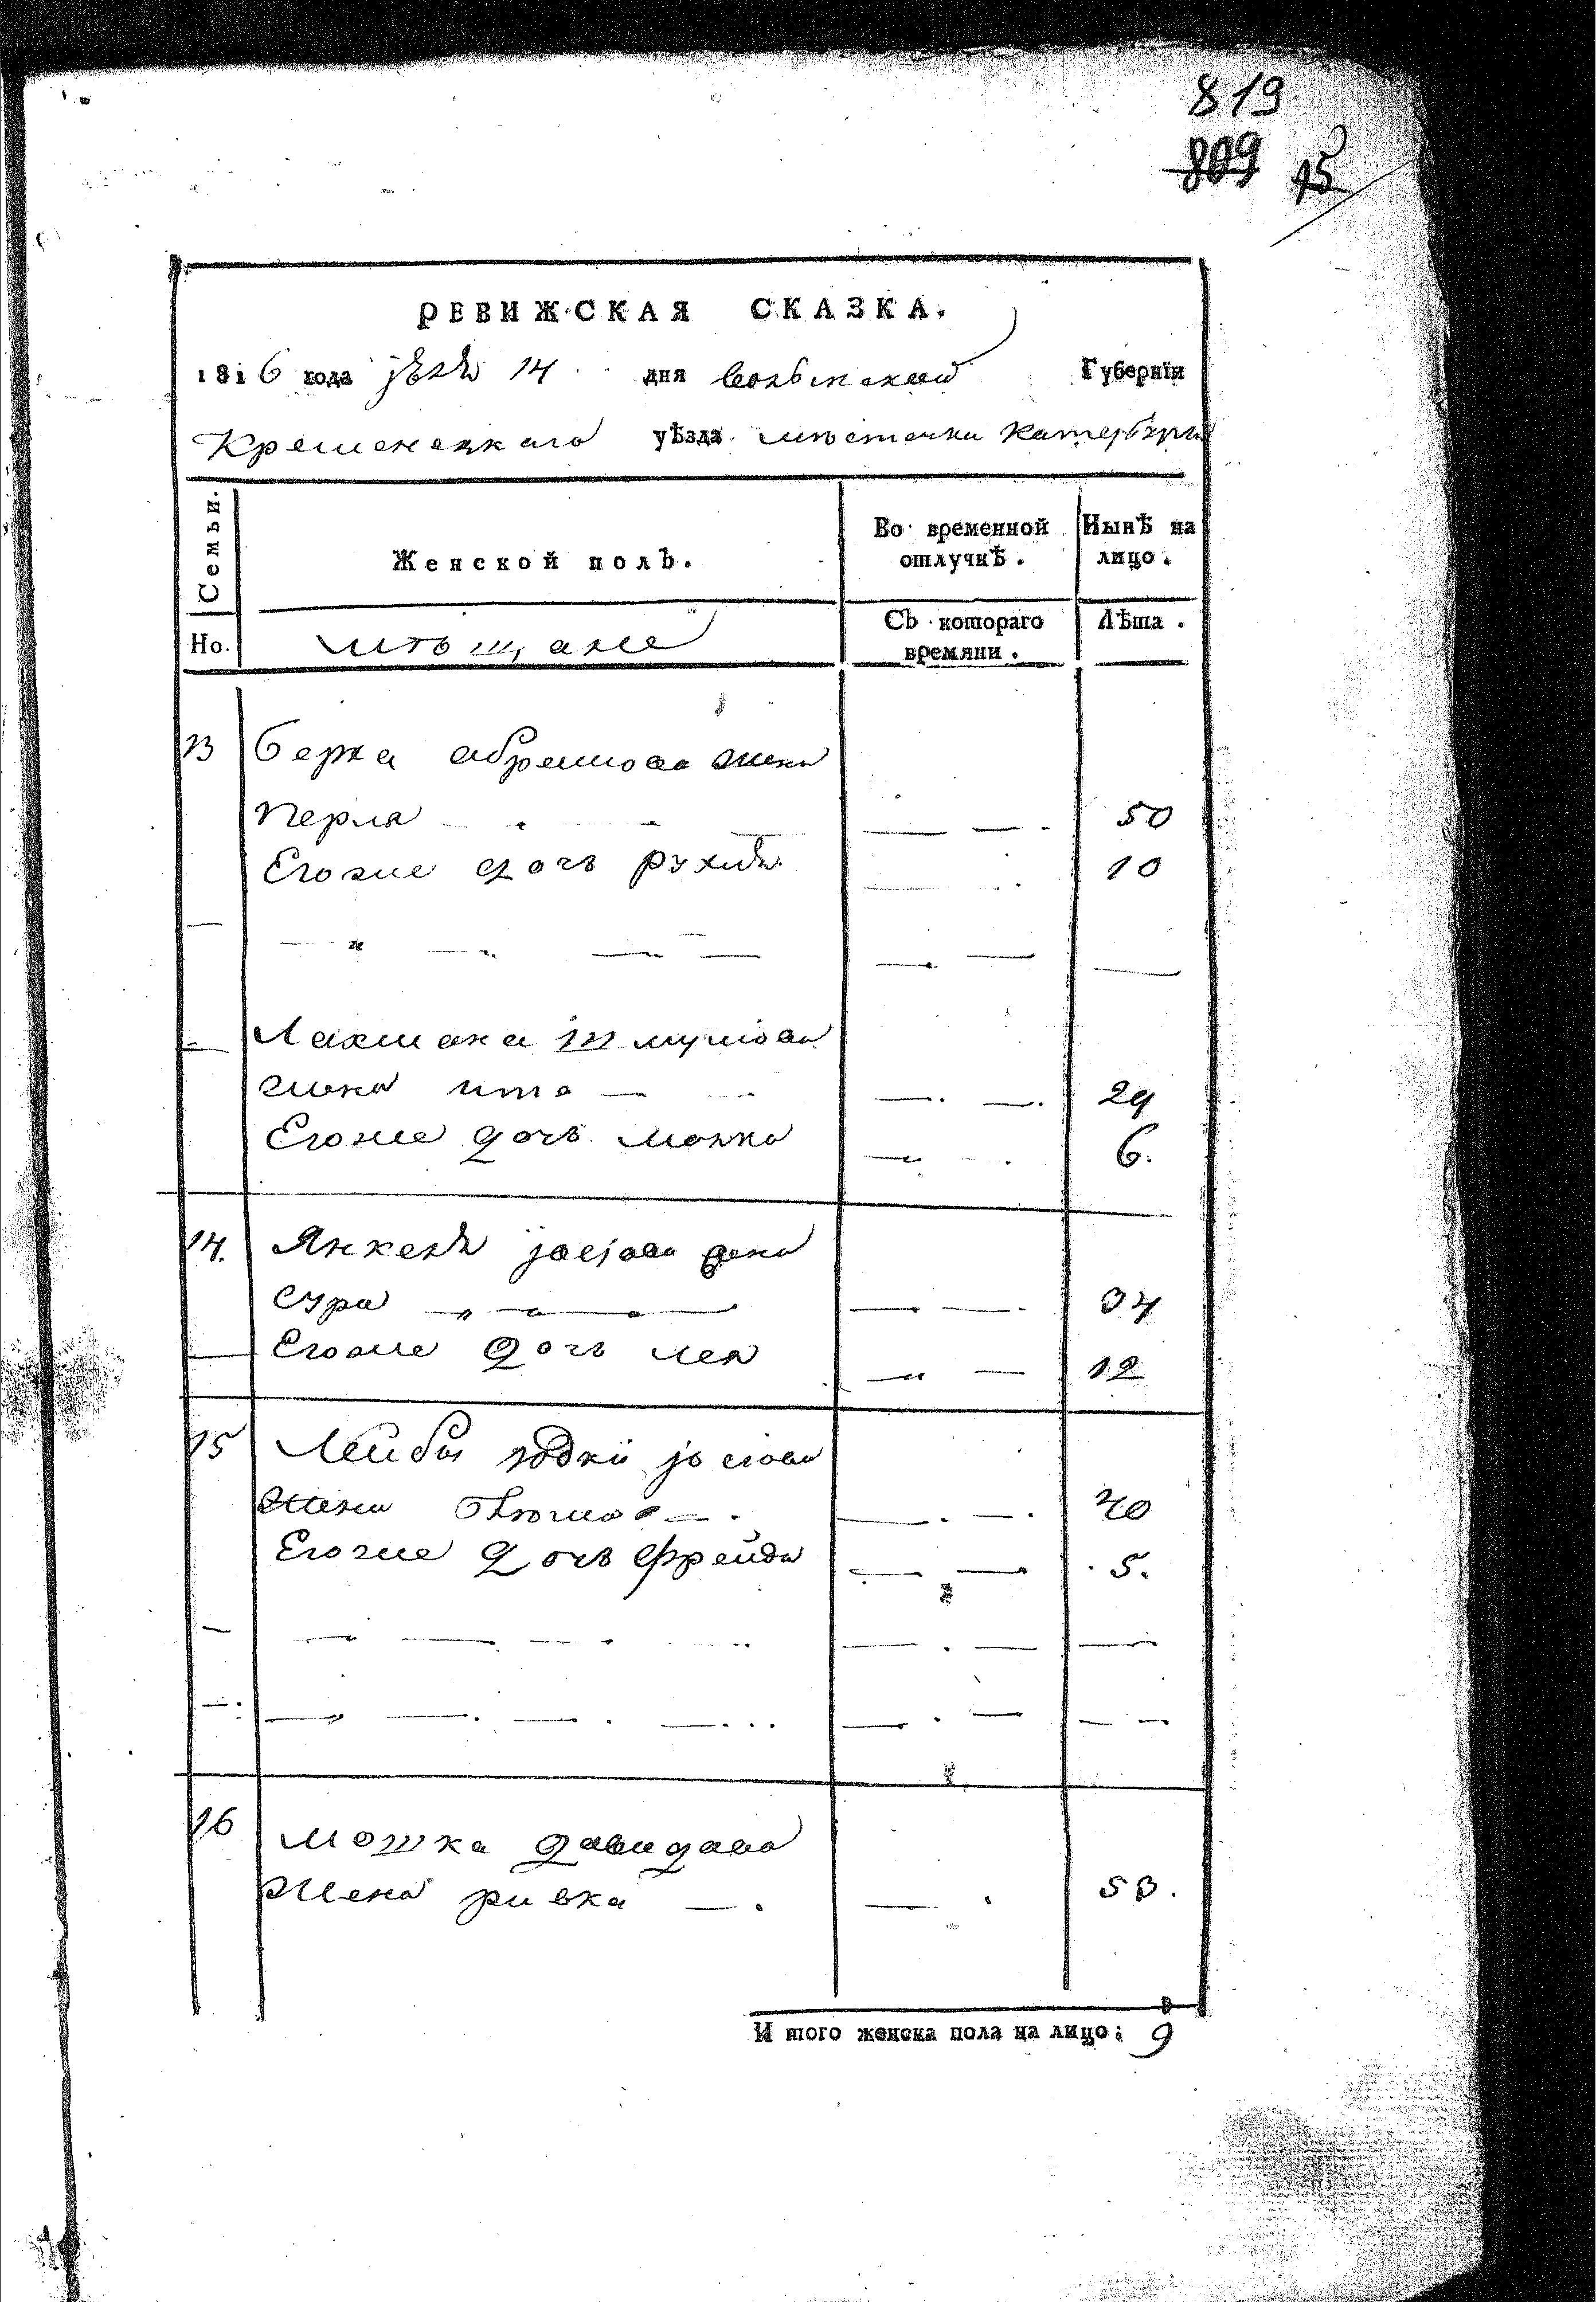 819
809 15
РЕВИЖСКАЯ СКАЗКА.
1816 года 14 дня волынской Губернїи
Кременецкаго уѣзда местечка Катербурга
Семьи.
Женской полъ.
Во временной отлучкѣ.
Нынѣ на лицо.
Но.
мѣщане
Съ котораго времяни.
Лѣта.
13 берка абрамова жена
Перла 50
Егоже дочь рухля 10
Лахмана
жена ита 29
Егоже дочь малка 6.
14. Янкеля josioва жена
сура 34
Егоже дочь лея 12
15 Лейбы josioва
жена 40
Егоже дочь фрейда 5.
16 мошка давидава
жена ривка 53.
И того женска пола на лицо: 9